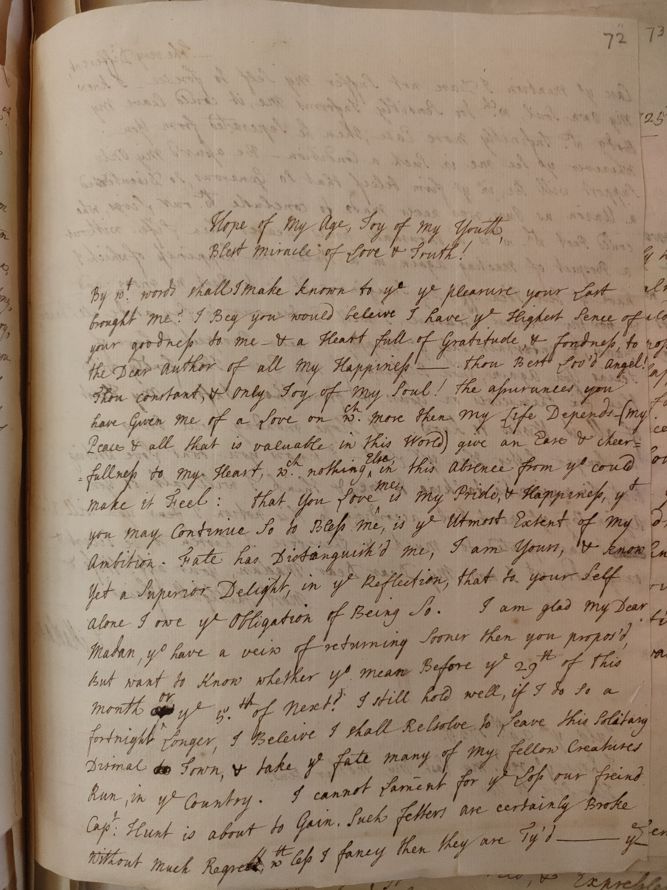 72
73
Hope of My Age, Joy of My Youth,
Blest Miracle of Love & Truth!
By wt. words shall I make known to ye ye pleasure your Last
brought me? I Beg you would beleive I have ye Highest Sence of
your goodness to me – & a Heart full of Gratitude, & fondness, to
the Dear Author of all My Happiness — thou Best Lov'd Angel!
Thou constant, & only Joy of My Soul! the assurances you
have Given me of a Love on wch. more then My Life Depends (My
Peace & all that is valuable in this World) give an Ease & cheer=
=fullness to My Heart, wch. nothing Else in this absence from ye could
make it Feel: that You Love me is My Pride, & Happiness, yt
you may Continue So to Bless me, is ye Utmost Extent of My
Ambition. Fate has Distanguish'd me, I am Yours, & know
Yet a Superior Delight, in ye Reflection, that to your Self
alone I owe ye Obligation of Being So. I am glad My Dear
Madan, yo have a veiw of returning Sooner then you propos'd,
But want to Know whether yo mean Before ye 29th of this
month or ye 5.th of Next? I still hold well, if I do so a
fortnight Longer, I Beleive I shall Relsolve to Leave this Solitary
Dismal Town, & take ye fate many of My fellow Creatures
Run, in ye Country. I cannot Lament for ye Loss our freind
Capt: Hunt is about to Gain. Such fetters are certainly Broke
without Much Regrett, wth less I fancy then they are Ty'd —